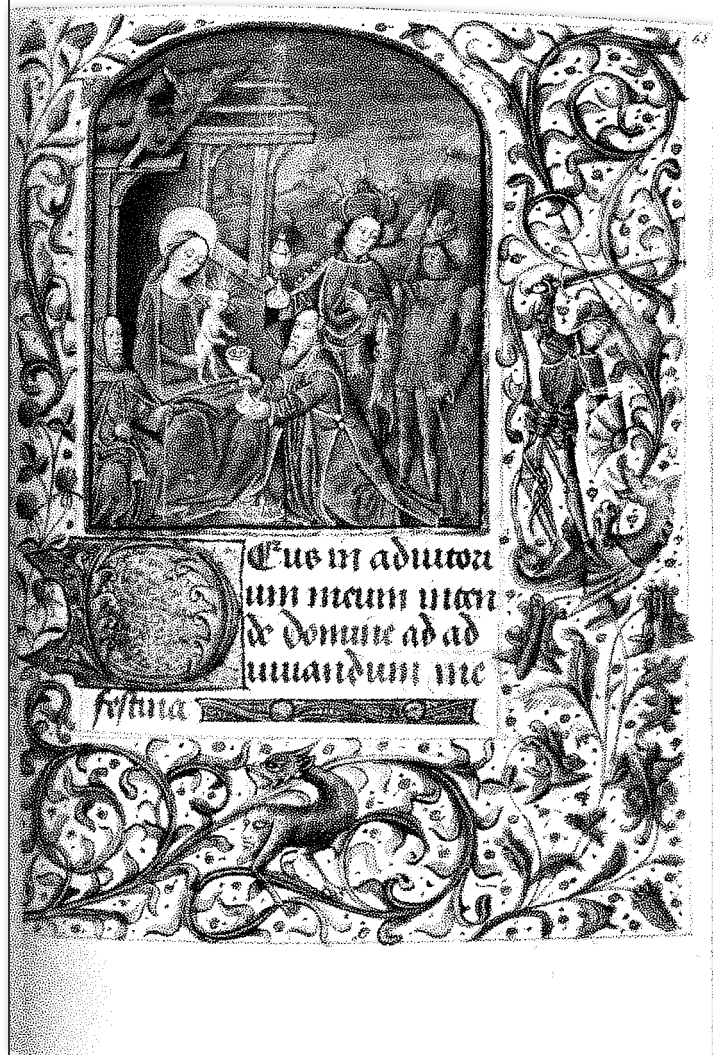 68
Eus in adiutori
um meum inten
de domine ad ad
iuuandum me
festina